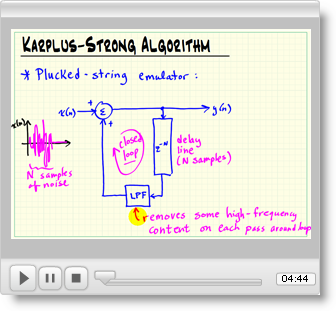 KARPLUS-STRONG ALGORITHM
* Plucked-string emulator:
x(n)
+
Σ
+
y(n)
x(n)
n
closed
loop
z^-N
delay
line
(N samples)
N samples
of noise
LPF
removes some high-frequency
content on each pass around loop
04:44